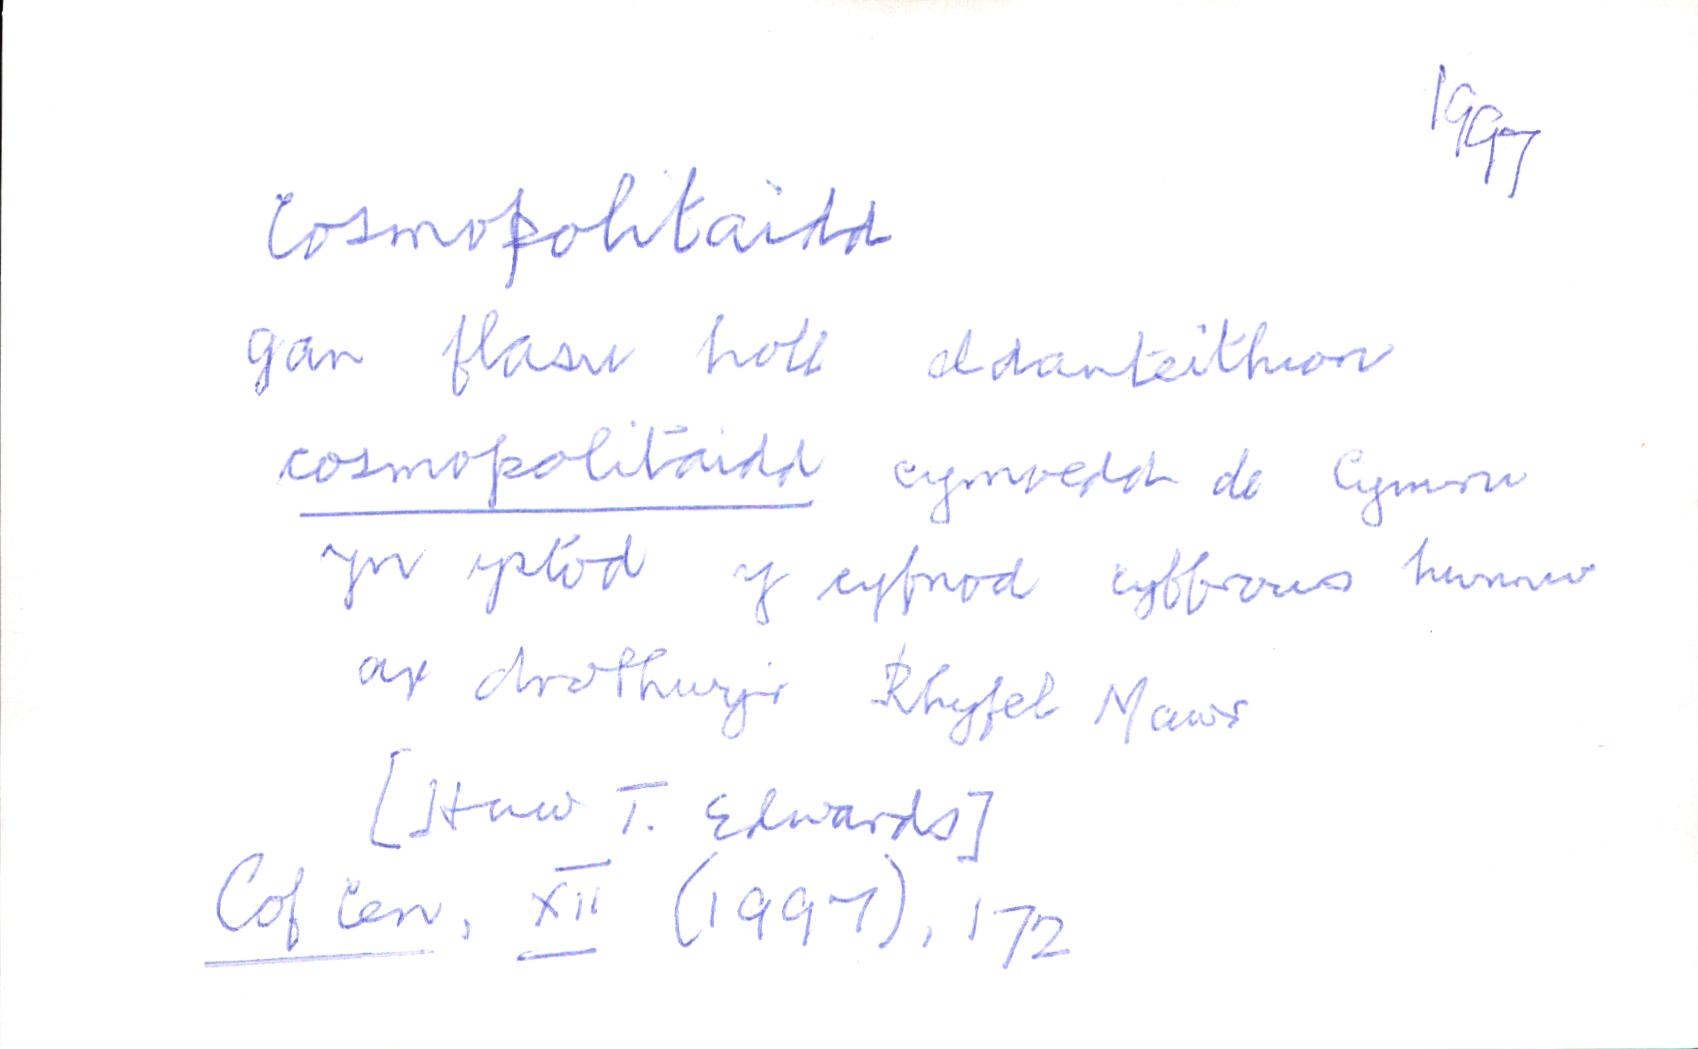 1997
Cosmopolitaidd
gan flasu holl ddanteithion
cosmopolitaidd cymoedd de Cymru
yn ystod y cyfnod cyffrous hwnnw
ar drothwy'r Rhyfel Mawr
[Huw T. Edwards]
Cof Cen, XII (1997), 172